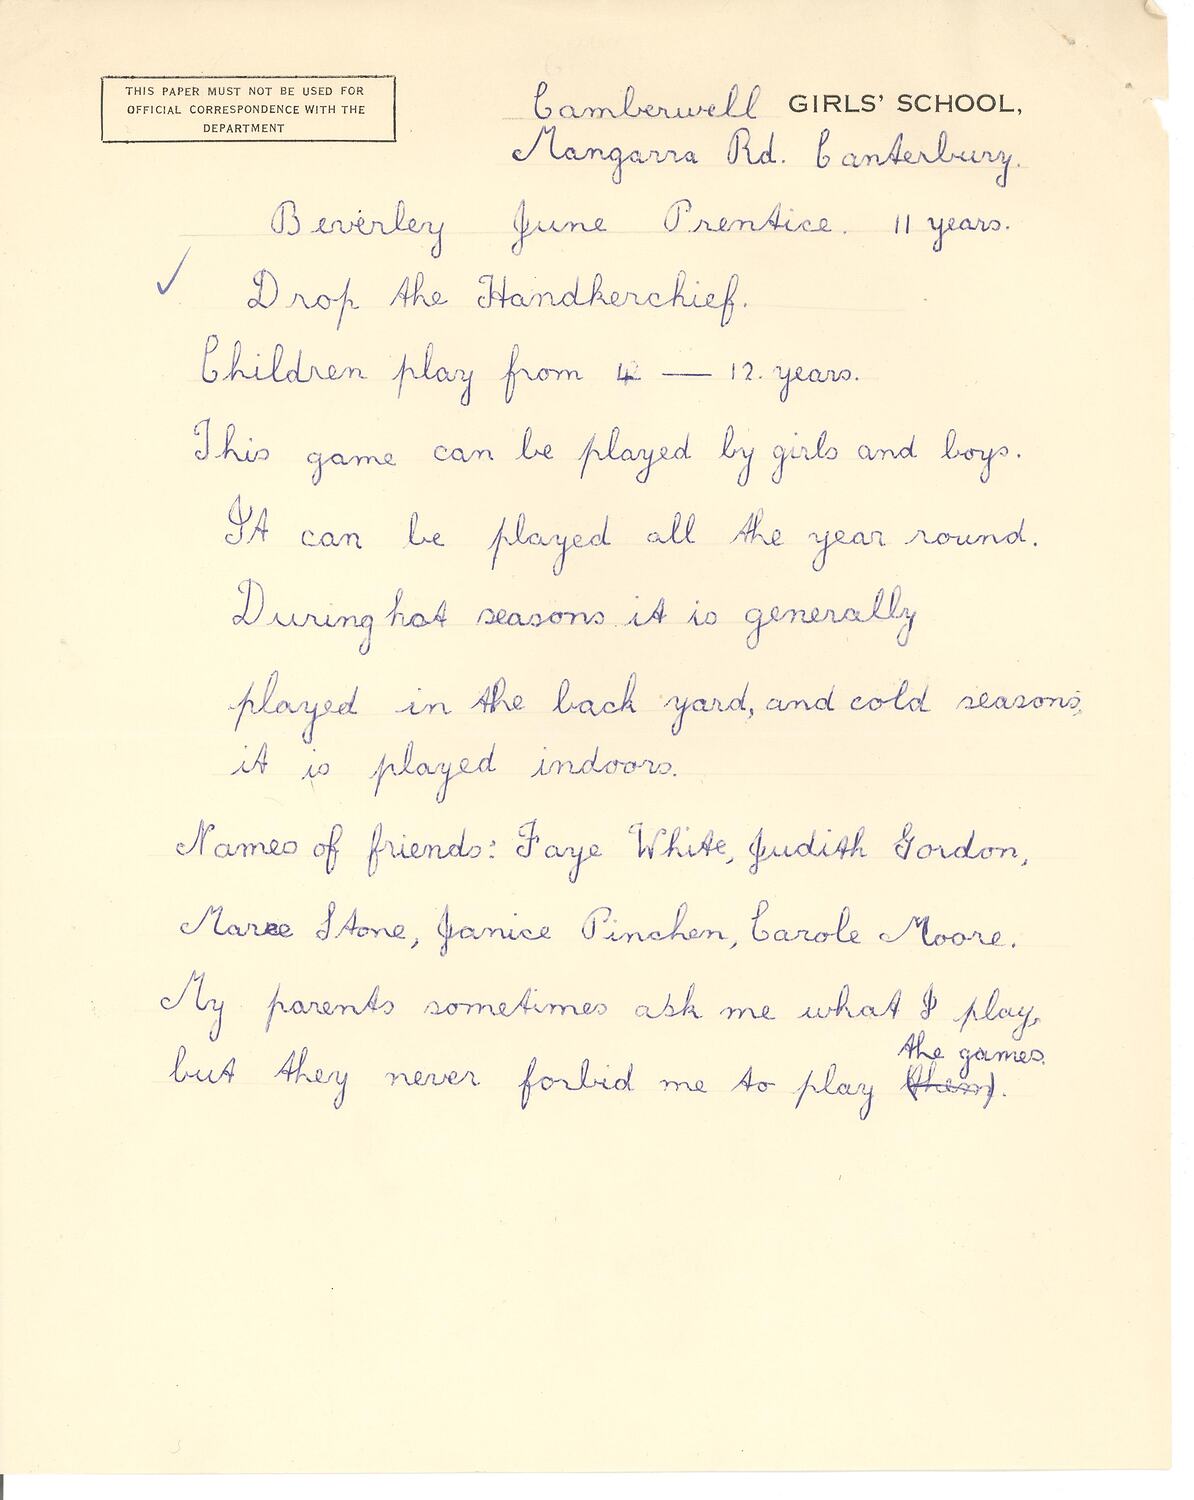 THIS PAPER MUST NOT BE USED FOR
OFFICIAL CORRESPONDENCE WITH THE
DEPARTMENT
Camberwell GIRLS' SCHOOL,
Mangarra Rd. Canterbury.
Beverley June Prentice. 11 years.
✓ Drop the Handkerchief.
Children play from 4 — 12. years.
This game can be played by girls and boys.
It can be played all the year round.
During hot seasons it is generally
played in the back yard, and cold seasons,
it is played indoors.
Names of friends: Faye White, Judith Gordon,
Maree Stone, Janice Pinchen, Carole Moore.
My parents sometimes ask me what I play,
the games.
but they never forbid me to play (them).